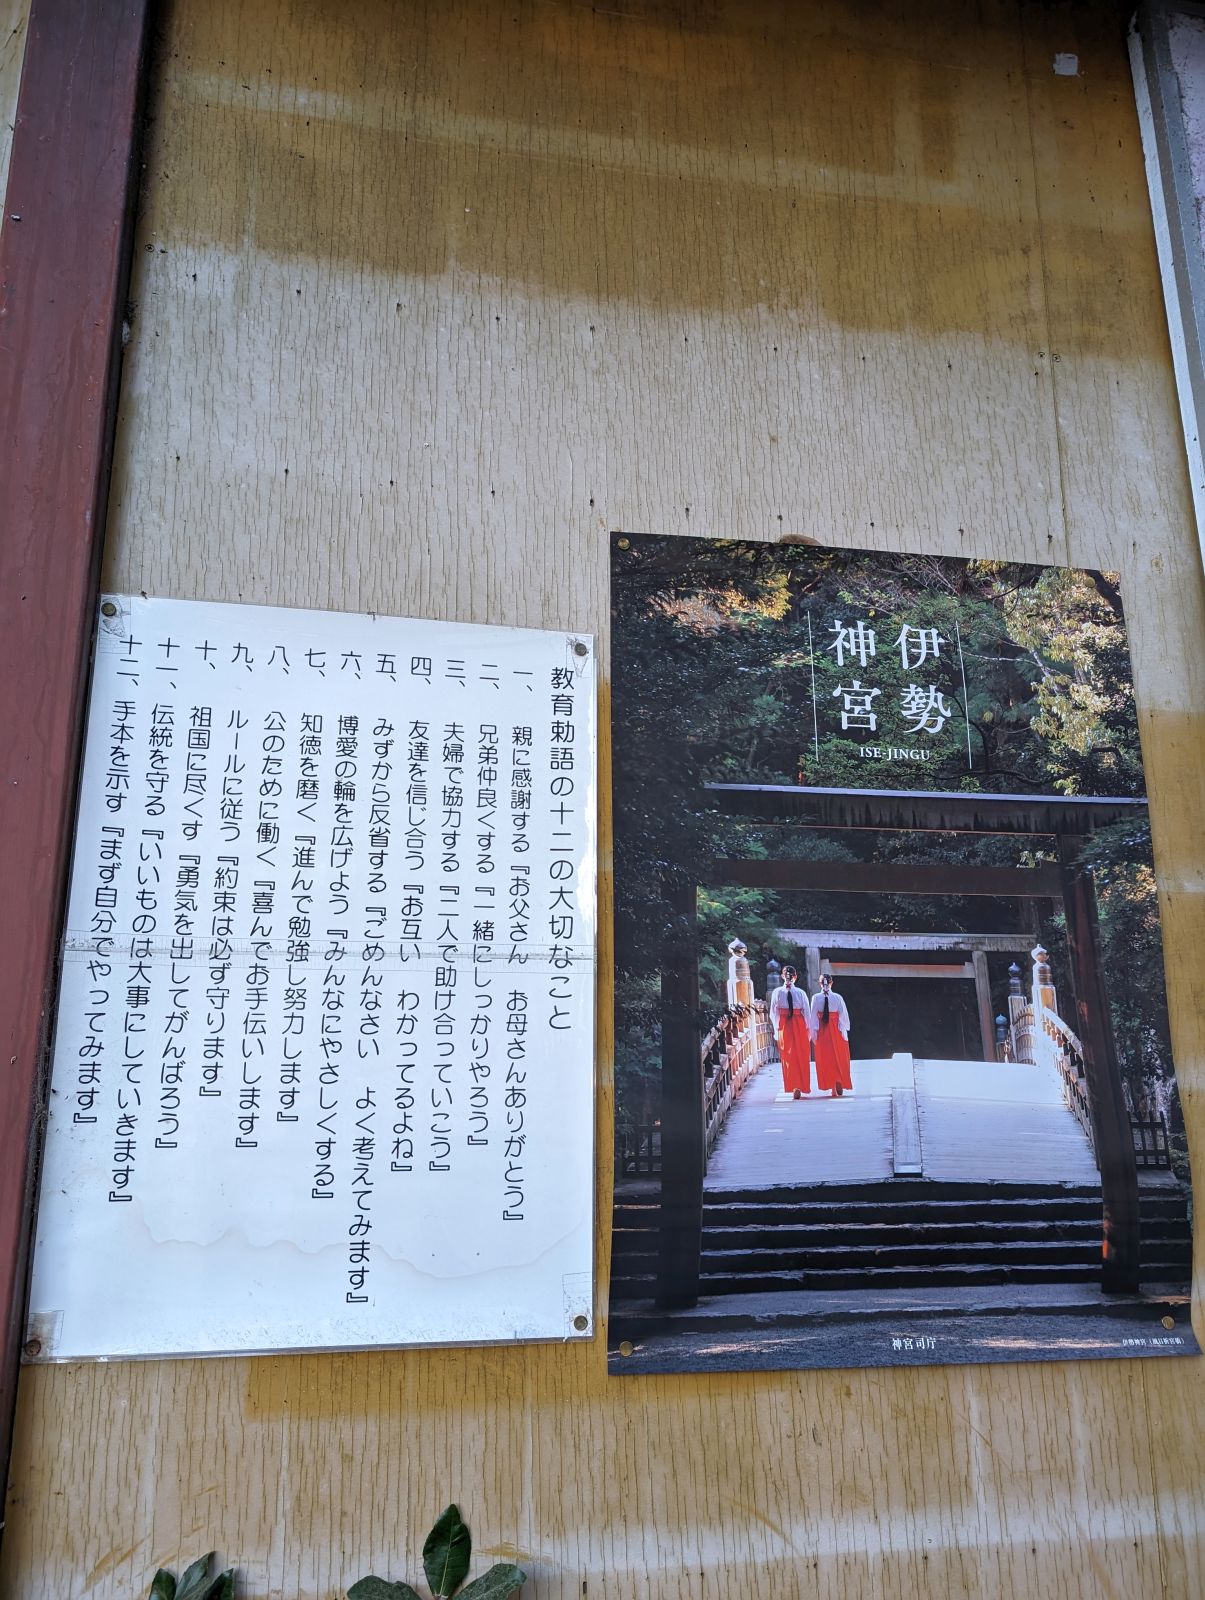 教育勅語の十二の大切なこと
一、親に感謝する『お父さん　お母さんありがとう』
二、兄弟仲良くする『一緒にしっかりやろう』
三、夫婦で協力する『二人で助け合っていこう』
四、友達を信じ合う『お互い　わかってるよね』
五、みずから反省する『ごめんなさい　よく考えてみます』
六、博愛の輪を広げよう『みんなにやさしくする』
七、知徳を磨く『進んで勉強し努力します』
八、公のために働く『喜んでお手伝いします』
九、ルールに従う『約束は必ず守ります』
十、祖国に尽くす『勇気を出してがんばろう』
十一、伝統を守る『いいものは大事にしていきます』
十二、手本を示す『まず自分でやってみます』
伊勢
神宮
ISE-JINGU
神宮司庁
伊勢神宮（風日祈宮橋）